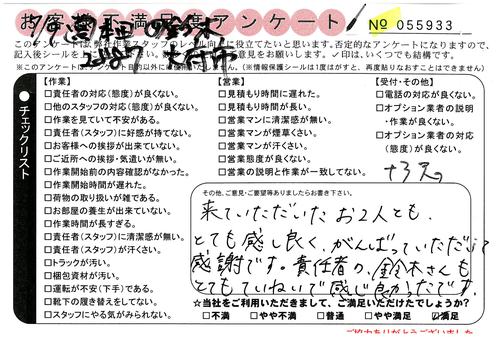 お客様不満足度アンケート
No 055933
このアンケートは弊社作業スタッフのレベル向上に役立てたいと思います。否定的なアンケートになりますので、
記入後シールを上からお貼りください。ご意見をお願いします。✓印は、いくつでも結構です。
(※このアンケートは、アンケート目的以外に使用いたしません。)(※情報保護シールは1度はがすと、再度貼りなおすことはできません)
●チェックリスト
【作業】
□責任者の対応(態度)が良くない。
□他のスタッフの対応(態度)が良くない。
□作業を見ていて不安がある。
□責任者(スタッフ)に好感が持てない。
□お客様への挨拶が出来ていない。
□ご近所への挨拶・気遣いが無い。
□作業開始前の内容確認がなかった。
□作業開始時間が遅れた。
□荷物の取り扱いが雑である。
□お部屋の養生が出来ていない。
□作業時間が長すぎる。
□責任者(スタッフ)に清潔感が無い。
□責任者(スタッフ)が汗くさい。
□トラックが汚い。
□梱包資材が汚い。
□運転が不安(下手)である。
□靴下の履き替えをしてない。
□スタッフにやる気がみられない。
【営業】
□見積もり時間に遅れた。
□見積もり時間が長い。
□営業マンに清潔感が無い。
□営業マンが煙草くさい。
□営業マンが汗くさい。
□営業態度が良くない。
□営業の説明と作業が一致してない。
【受付・その他】
□電話の対応が良くない。
□オプション業者の説明
・作業が良くない。
□オプション業者の対応
(態度)が良くない。
その他、ご意見・ご要望等ありましたらお書き下さい。
来ていただいたお2人とも、
とても感し良く、がんばっていただいて
感謝です。責任者の、鈴木さんも
とてもていねいで感じ良かったです。
☆当社をご利用いただきまして、ご満足いただけたでしょうか?
□不満 □やや不満 □普通 □やや満足 ☑満足
ご協力ありがとうございました